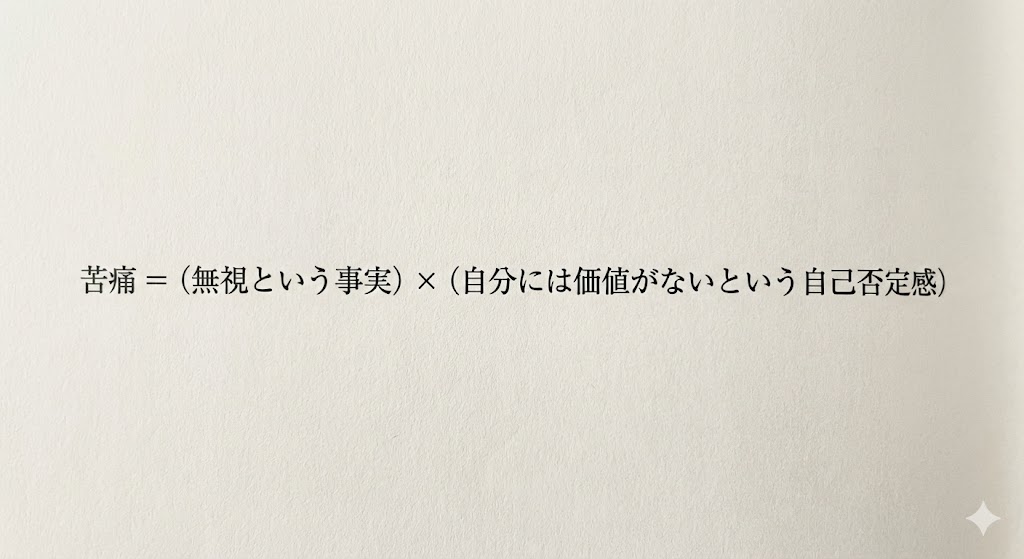 苦痛 ＝（無視という事実）×（自分には価値がないという自己否定感）